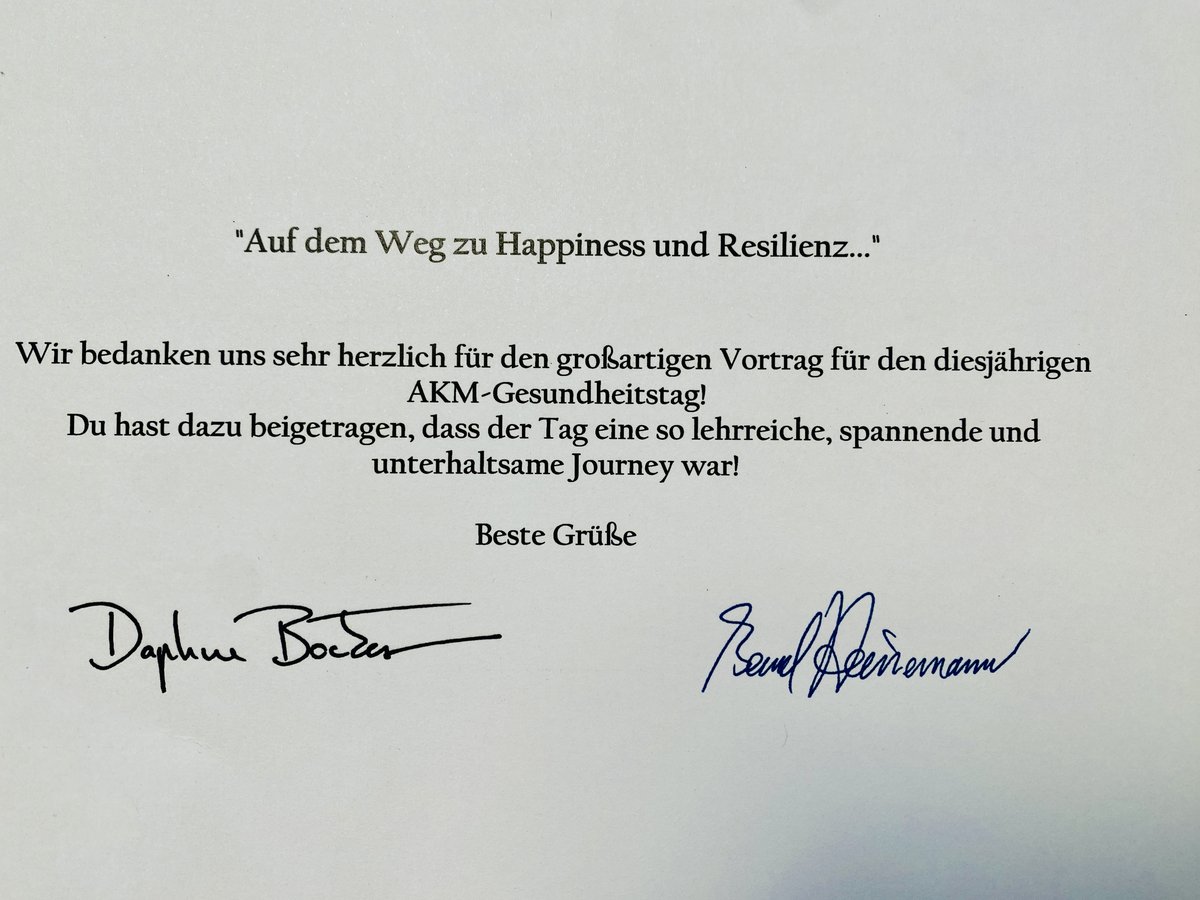 "Auf dem Weg zu Happiness und Resilienz..."
Wir bedanken uns sehr herzlich für den großartigen Vortrag für den diesjährigen
AKM-Gesundheitstag!
Du hast dazu beigetragen, dass der Tag eine so lehrreiche, spannende und
unterhaltsame Journey war!
Beste Grüße
Daphne